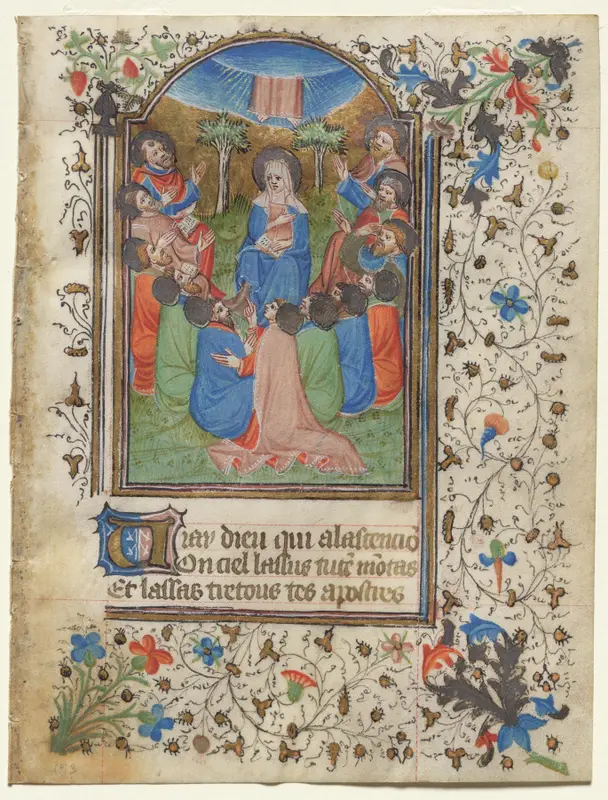 Uray dieu qui alascenciō
On ciel lassus tute mōtas
Et lassas tretous tes apostres